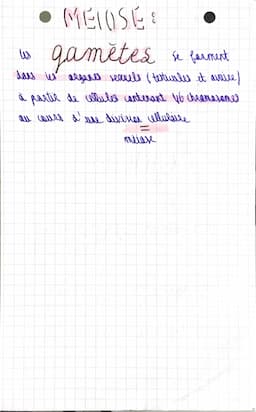 MEIOSE :
les gamètes se forment
dans les organes sexuels (testicules et ovaire)
à partir de cellules contenant 46 chromosomes
au cours d'une division cellulaire
=
méiose